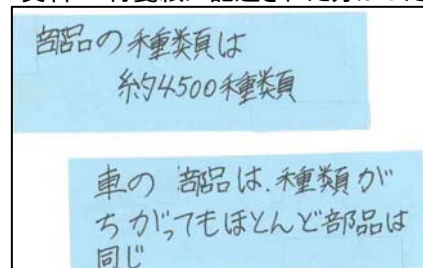 部品の種類は
約4500種類
車の部品は、種類が
ちがってもほとんど部品は
同じ